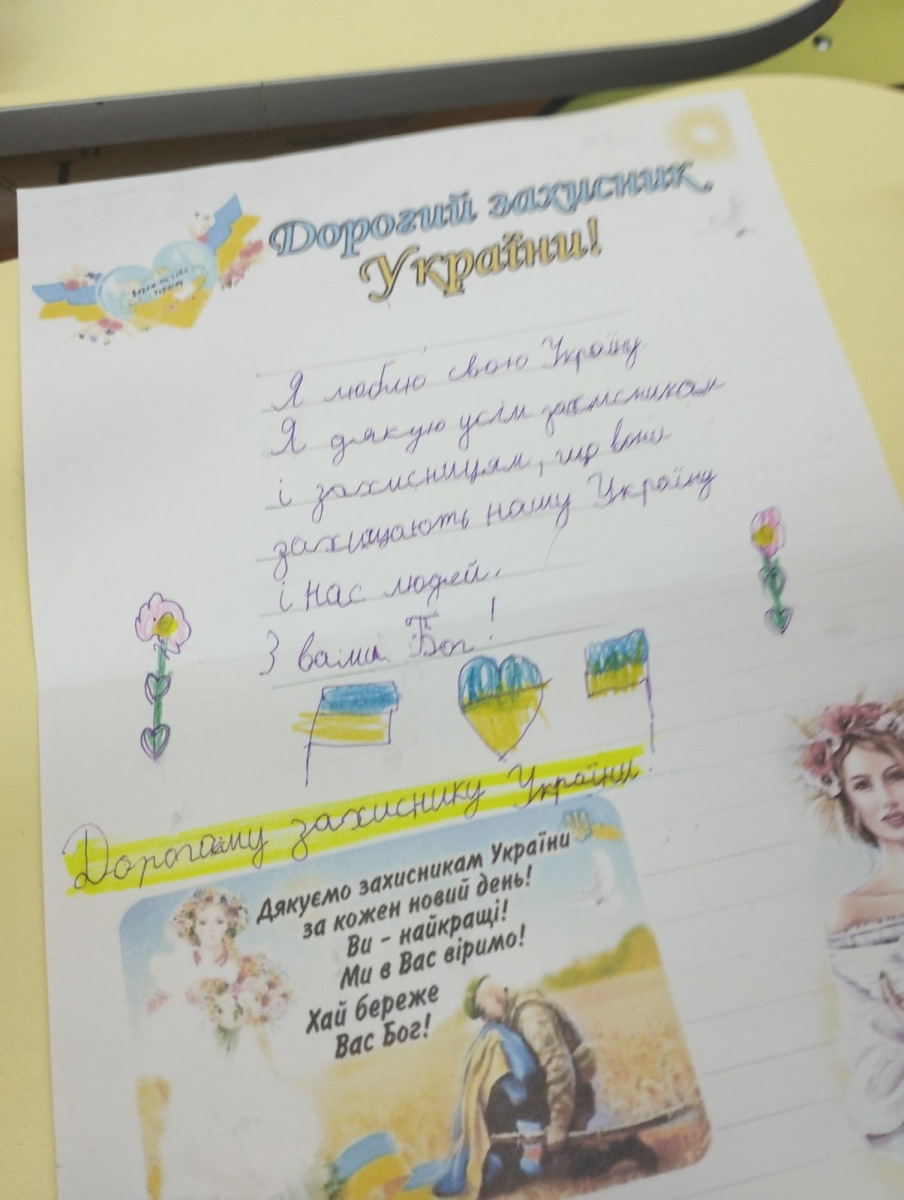 Дорогий захисник
України!
Я люблю свою Україну.
Я дякую усім захисникам
і захисницям, що вони
захищають нашу Україну
і нас людей.
З вами Бог!
Дорогому захиснику України.
Дякуємо захисникам України
за кожен новий день!
Ви - найкращі!
Ми в Вас віримо!
Хай береже
Вас Бог!